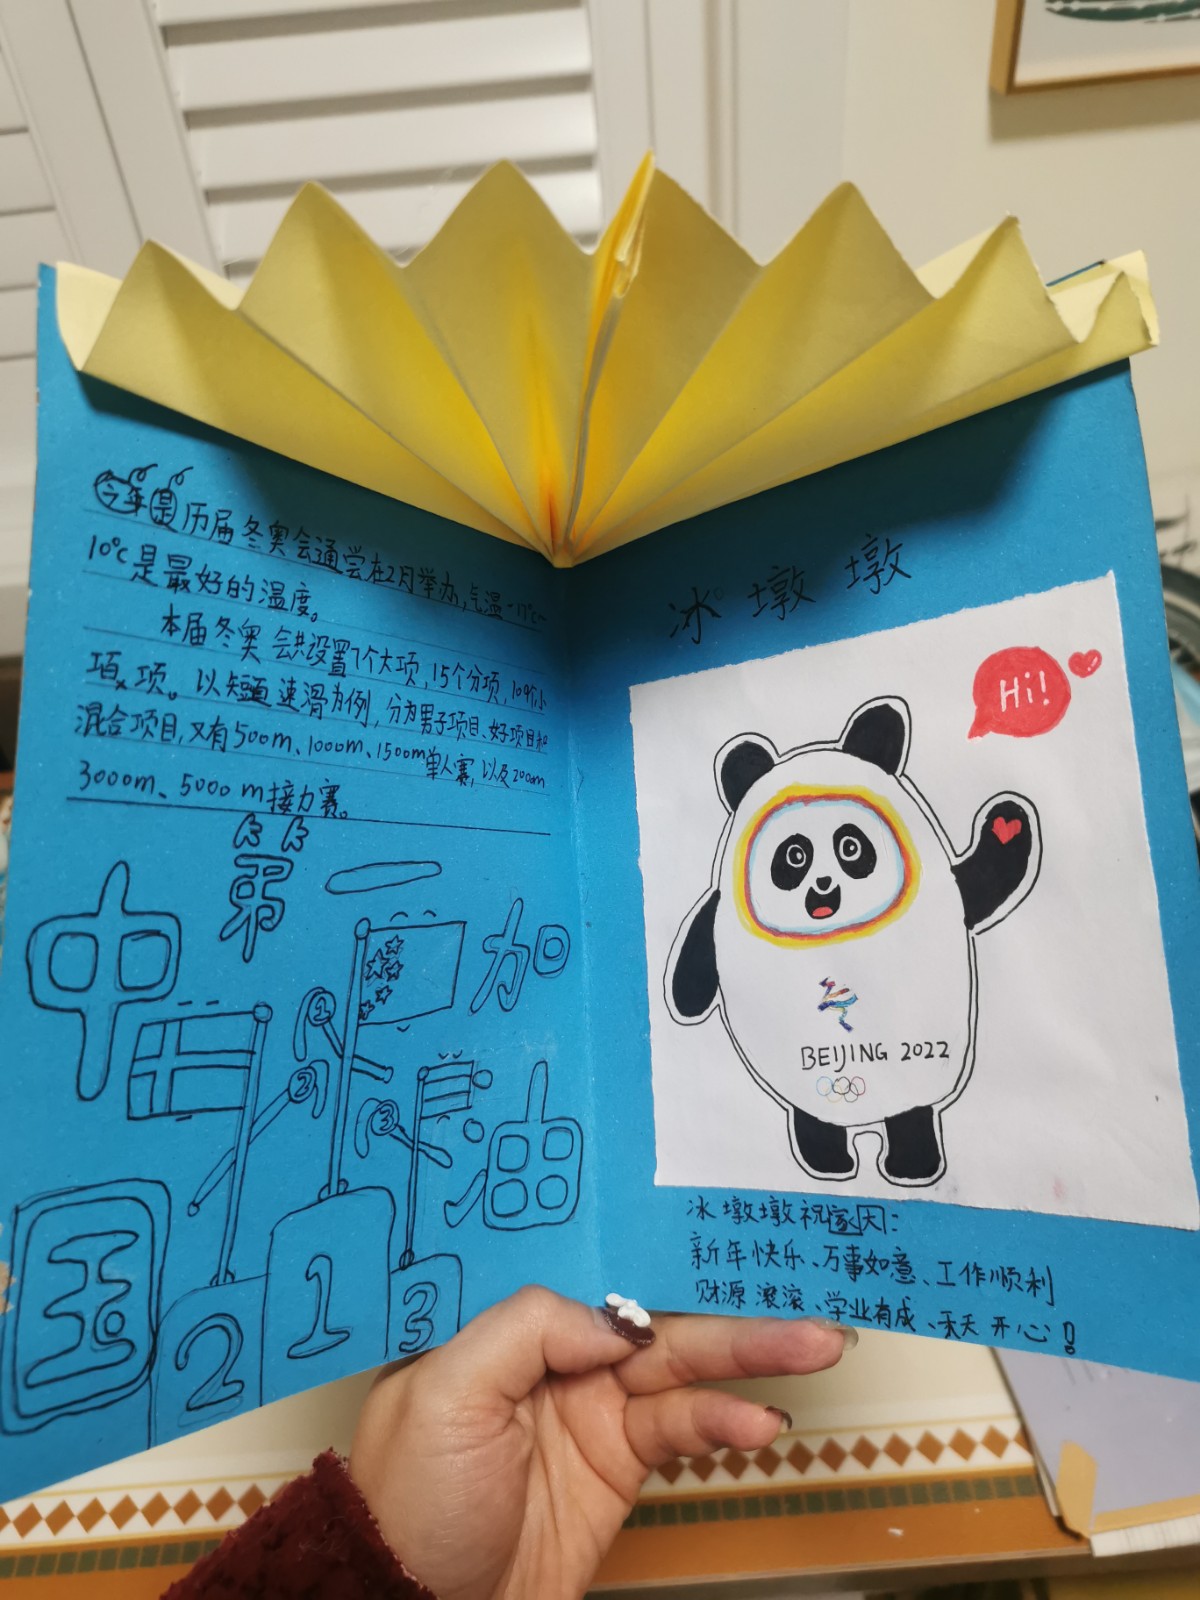 今年是历届冬奥会通尝在2月举办,气温-17℃~
10℃是最好的温度。
本届冬奥会共设置7个大项,15个分项,109个小
项。以短道速滑为例,分为男子项目、女子项目和
混合项目,又有500m、1000m、1500m单人赛,以及2000m
3000m、5000m接力赛。
第一
中
加
国
油
1
2
3
2
1
3
冰墩墩
Hi!
BEIJING 2022
冰墩墩祝
新年快乐、万事如意、工作顺利
财源滚滚、学业有成、天天开心!